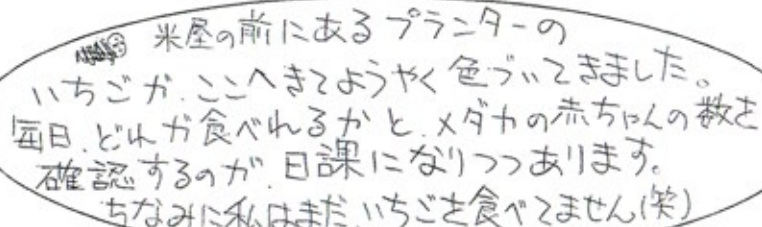 米屋の前にあるプランターの
いちごが、ここへきてようやく色づいてきました。
毎日、どれが食べれるかと、メダカの赤ちゃんの数を
確認するのが、日課になりつつあります。
ちなみに私はまだ、いちごを食べてません(笑)